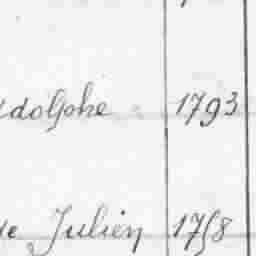 Adolphe 1793
Julien 1758